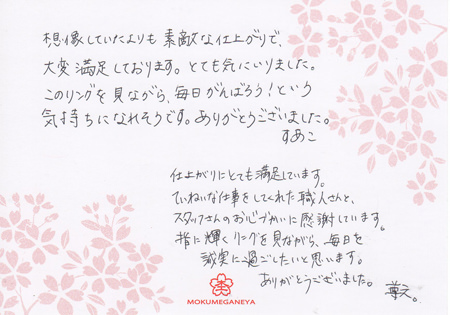 想像していたよりも素敵な仕上がりで、
大変満足しております。とても気にいりました。
このリングを見ながら、毎日がんばろう!という
気持ちになれそうです。ありがとうございました。
すあこ
仕上がりにとても満足しています。
ていねいな仕事をしてくれた職人さんと、
スタッフさんのお心づかいに感謝しています。
指に輝くリングを見ながら、毎日を
誠実に過ごしたいと思います。
ありがとうございました。
MOKUMEGANEYA